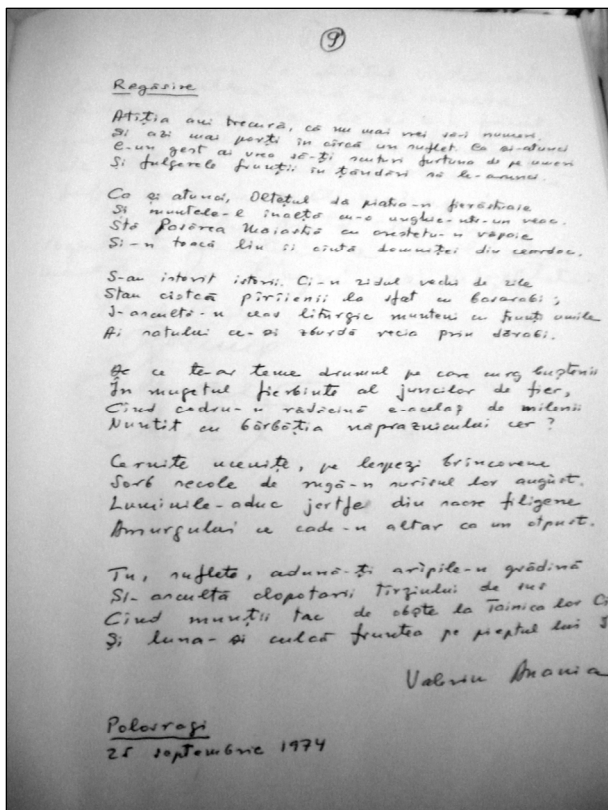 9
Regăsire
Atîția ani trecură, că nu mai vrei săi numeri.
Și azi mai porți în cîrcă un suflet. Ca și-atunci
C-un gest ai vrea să-ți scuturi furtuna de pe umeri
Și fulgerele frunții în țăndări să le-arunci.
Ca și atunci, Oltețul dă piatra-n fierăstraie
Și muntele-l înalță cu-o unghie-ntr-un veac.
Stă Pasărea Măiastră cu crestetu-n văpaie
Si-n toacă lin îi cîntă domniței din cerdac.
S-au istovit istorii. Ci-n zidul vechi de zile
Stau cîstcă pîrîienii la sfat cu basarabi;
S-ascultă-n ceas liturgic munteni cu frunți umile
Ai satului ce-și zburdă vecia prin dărabi.
De ce te-ar teme drumul pe care curg buștenii
În mugetul fierbinte al juncilor de fier,
Cînd codru-n rădăcină e-acelaș de milenii
Nuntit cu bărbăția năpraznicului cer?
Cernite ucenițe, pe lespezi brîncovene
Sorb secole de rugă-n surîsul lor august.
Luminile-aduc jertfe din sacre filigene
Amurgului ce cade-n altar ca un
Tu, suflete, adună-ți aripile-n grădină
Si-ascultă clopotarii Tîrziului de sus
Cînd munții tac de obște la Tainica lor
Și luna-și culcă fruntea pe pieptul lui
Valeriu Anania
Polovragi
25 septembrie 1974